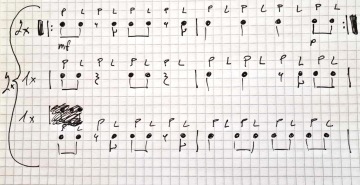 P L P L P L P L P L P L P L P L
2x
mf p
P L P L P L P L P L P L P L P L
2x 1x
1x
P L P L P L P L P L P L P L P L